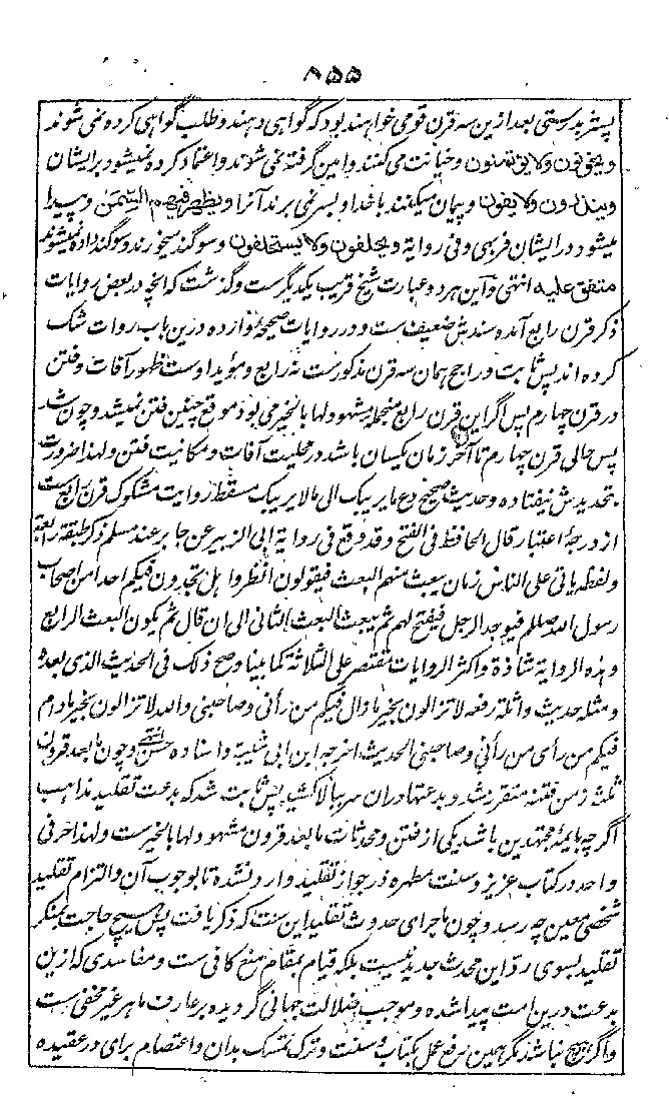 ۸۵۵
پستر بدرستی بعد ازین سه قرن قومی خواهند بود که گواهی دهند و طلب گواهی کرده نمی شوند
ویخونون ولا یؤتمنون و خیانت می کنند و امین گرفته نمی شوند و اعتماد کرده نمیشود بر ایشان
وینذرون ولا یفون و پیمان میکنند با خدا و بسر نمی برند آنرا ویظهر فیهم السمن و پیدا
میشود در ایشان فربهی وفی روایة ویحلفون ولا یستحلفون و سوگند میخورند و سوگند داده نمیشوند
متفق علیه انتهی و این هر دو عبارت شیخ قریب یکدیگرست و گذشت که آنچه در بعض روایات
ذکر قرن رابع آمده سندش ضعیف ست و در روایات صحیحه نوازده درین باب روات شک
کرده اند پس ثابت و راجح همان سه قرن مذکورست نه رابع و مؤید اوست ظهور آفات و فتن
در قرن چهارم پس اگر این قرن رابع منجمله مشهود لها بالخیر می بود موقع چنین فتن نمیشد و چون شد
پس حالی قرن چهارم تا آخر زمان یکسان باشد در محلیت آفات و مکانیت فتن و لهذا ضرورت
بتحدیدش نیفتاده و حدیث صحیح دع ما یریبک الی ما لا یریبک مسقط روایت مشکوک قرن رابع ست
از درجۀ اعتبار قال الحافظ فی الفتح وقد وقع فی روایة ابی الزبیر عن جابر عند مسلم ذکر طبقة رابعة
ولفظه یاتی علی الناس زمان یبعث منهم البعث فیقولون انظروا هل تجدون فیکم احدا من اصحاب
رسول الله صلعم فیوجد الرجل فیفتح لهم ثم یبعث البعث الثانی الی ان قال ثم یکون البعث الرابع
وهذه الروایة شاذة واکثر الروایات تقتصر علی الثلاثة کما بینا وضح ذلک فی الحدیث الذی بعده
ومثله حدیث واثلة رفعه لا تزالون بخیر ما دام فیکم من رأنی وصاحبنی والله لا تزالون بخیر ما دام
فیکم من رأی من رأنی وصاحبنی الحدیث اخرجه ابن ابی شیبة واسناده حسن انتهی و چون ما بعد قرون
ثلثه زمن فتنه متقرر شد و بدعتها دران سر ببالا کشید پس ثابت شد که بدعت تقلید مذاهب
اگرچه بایمۀ مجتهدین باشد یکی از فتن و محدثات ما بعد قرون مشهود لها بالخیر ست و لهذا حرفی
واحد در کتاب عزیز و سنت مطهره در جواز تقلید وارد نشده تا بوجوب آن و التزام تقلید
شخصی معین چه رسد و چون ماجرای حدوث تقلید این ست که ذکر یافت پس هیچ حاجت بمنکر
تقلید بسوی رد این محدث جدید نیست بلکه قیام بمقام منع کافی ست و مفاسدی که ازین
بدعت درین امت پیدا شده و موجب ضلالت جهانی گردیده بر عارف ماهر غیر مخفی ست
و اگر هیچ نباشد مگر همین رفع عمل بکتاب و سنت و ترک تمسک بدان و اعتصام برای در عقیده